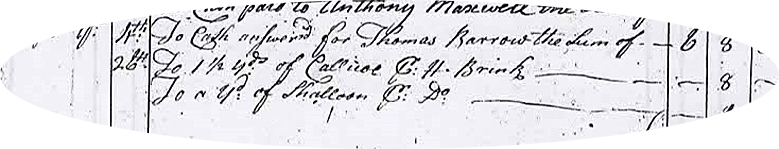 paid to Anthony Maxwell the
4th To Cash answered for Thomas Barrow the Sum of - 6 8
26th To 1 1/2 yds of Callicoe Pr H. Brink 8
To a yd of Shalloon Pr Do